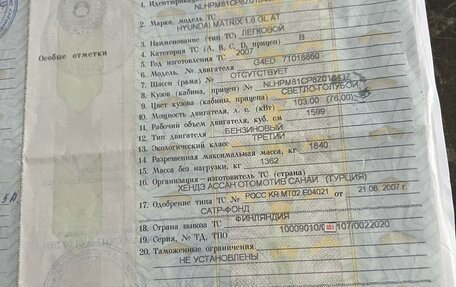 1. Идентификаци
NLHPM81CP8Z018437
2. Марка, модель ТС HYUNDAI MATRIX 1.6 GL AT
Особые отметки
3. Наименование (тип ТС) ЛЕГКОВОЙ
4. Категория ТС (А, В, С, D, прицеп) B
5. Год изготовления ТС 2007
6. Модель, № двигателя G4ED 7T018860
7. Шасси (рама) № ОТСУТСТВУЕТ
8. Кузов (кабина, прицеп) № NLHPM81CP8Z018437
9. Цвет кузова (кабины, прицепа) СВЕТЛО-ГОЛУБОЙ
10. Мощность двигателя, л. с. (кВт) 103.00 (76.00)
11. Рабочий объем двигателя, куб. см 1599
12. Тип двигателя БЕНЗИНОВЫЙ
13. Экологический класс ТРЕТИЙ
14. Разрешенная максимальная масса, кг 1840
15. Масса без нагрузки, кг 1362
16. Организация-изготовитель ТС (страна)
ХЕНДЭ АССАН ОТОМОТИВ САНАЙ (ТУРЦИЯ)
17. Одобрение типа ТС № РОСС KR.МТ02.Е04021 от 21.08.2007 г
САТР-ФОНД
18. Страна вывоза ТС ФИНЛЯНДИЯ
19. Серия, № ТД, ТПО 10009010/ 107/0022020
20. Таможенные ограничения
НЕ УСТАНОВЛЕНЫ